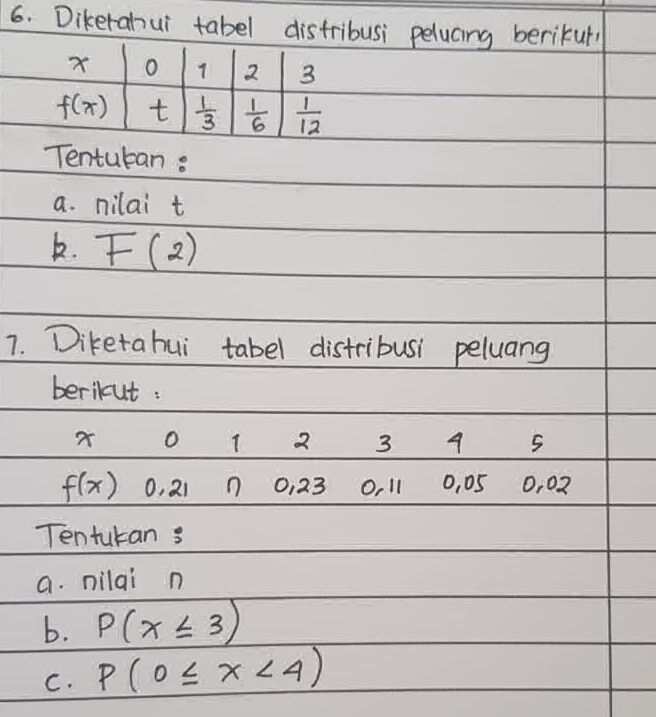 6. Diketahui tabel distribusi peluang berikut:
x | 0 | 1 | 2 | 3
f(x) | t | 1/3 | 1/6 | 1/12
Tentukan :
a. nilai t
b. F(2)
7. Diketahui tabel distribusi peluang
berikut :
x 0 1 2 3 4 5
f(x) 0,21 n 0,23 0,11 0,05 0,02
Tentukan :
a. nilai n
b. P(x ≤ 3)
c. P(0 ≤ x < 4)